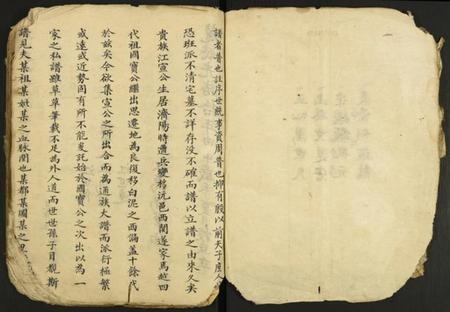 譜者普也註序世統事資周普也抑有殷以前天子庶人
恐班派不清宅墓不詳存沒不確而譜以立譜之由來久矣
貴族江宣公生居濟陽特遭兵變移沅邑西關遂家焉越四
代祖國寶公繼出思遷地為良復移白泥之西誦蓋十餘代
於茲矣今欲集宣公之所出合而為通族大譜而派行極繁
或遠或近勢固有所不能爰託始於國寶公之次出以為一
家之私譜雖草草筆載不足為外人道而世世孫子目覩斯
譜見夫某祖某妣某之血脈関也某都某圖某之墨